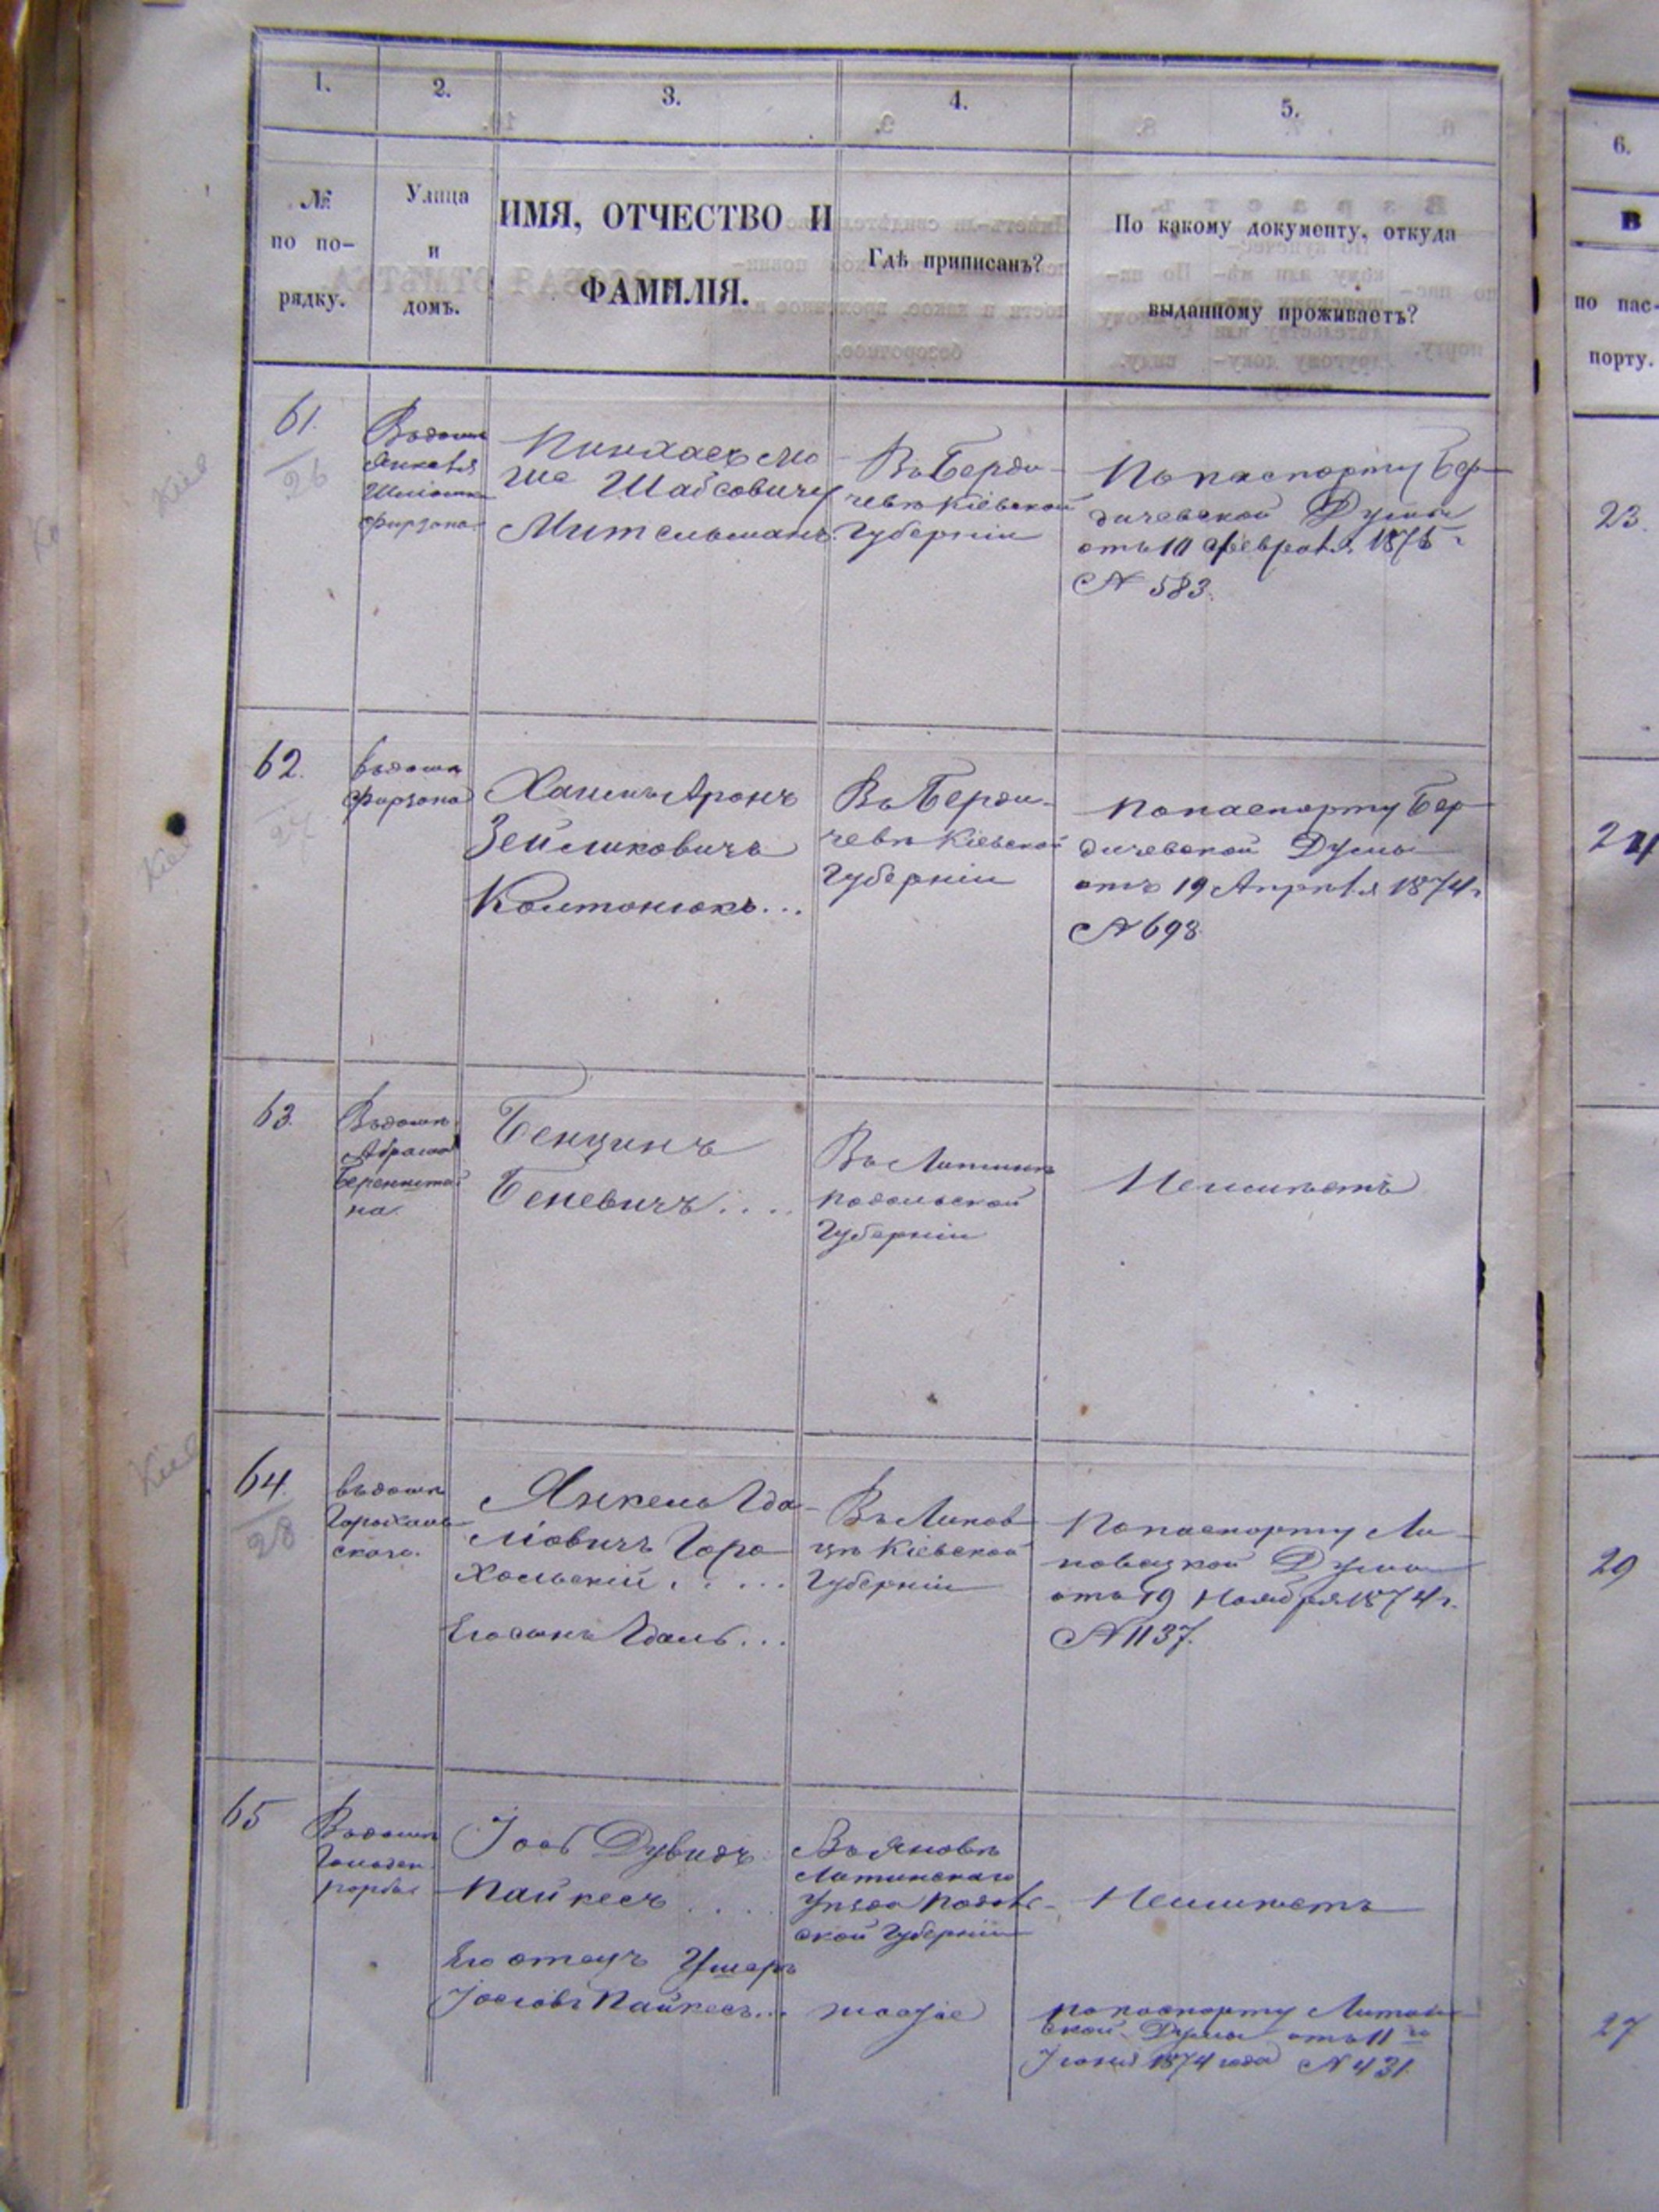 1.
2.
3.
4.
5.
№
по по-
рядку.
Улица
и
домъ.
ИМЯ, ОТЧЕСТВО И
ФАМИЛІЯ.
Гдѣ приписанъ?
По какому документу, откуда
выданному проживаетъ?
6.
В
по пас-
порту.
61.
26
Въ домѣ
Янкеля
Шліомки
Фирзона
Пинхасъ Мо
ше Шабсовичъ
Мительманъ.
Въ Берди-
чевѣ Кіевской
Губерніи
По паспорту Бер-
дичевской Думы
отъ 10 Февраля 1875 г
№ 583.
23.
62.
27
Въ домѣ
Фирзона
Хаимъ Аронъ
Зейликовичъ
Колтонюкъ...
Въ Берди-
чевѣ Кіевской
Губерніи
По паспорту Бер-
дичевской Думы
отъ 19 Апрѣля 1874 г
№ 698
21
63.
Въ домѣ
Абрама
Беренштей
на.
Бенцинъ
Беневичъ....
Въ Литинѣ
Подольской
Губерніи
Неимѣетъ
64.
28
Въ домѣ
Горохоль
скаго.
Янкель Гда-
ліовичъ Горо
хольскій.....
Его сынъ Гдаль...
Въ Липов
цѣ Кіевской
Губерніи
По паспорту Ли-
повецкой Думы
отъ 19 Ноября 1874 г.
№ 1137.
29
65
Въ домѣ
Іосъ Дувидъ
Пайкесъ....
Въ Яновѣ
Литинскаго
Уѣзда Подоль-
ской Губерніи
Неимѣетъ
Его отецъ Ушеръ
Пайкесъ...
тоже
по паспорту Литин-
ской Думы отъ 11 го
Іюня 1874 года № 431.
27
Кіев
Кіев
Кіев